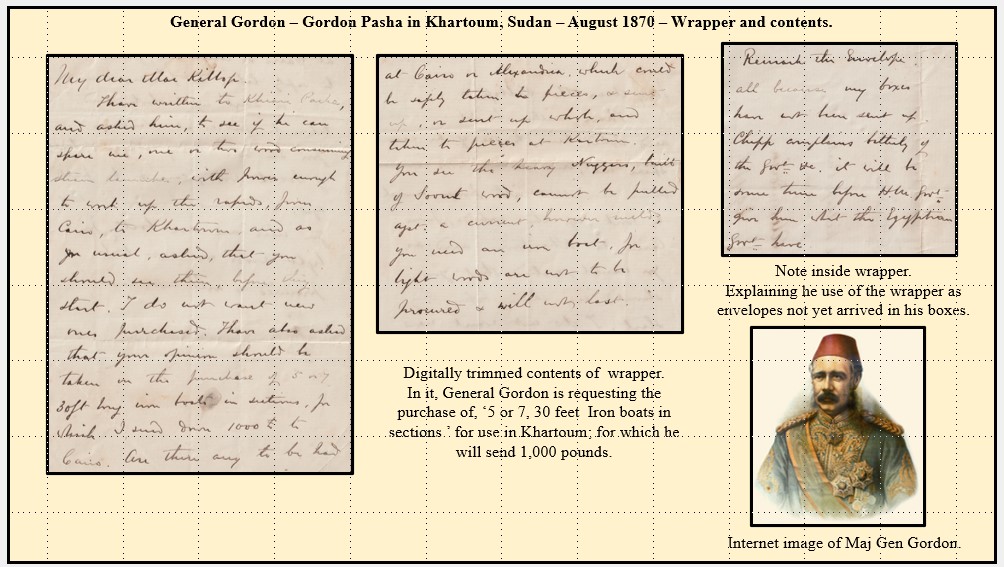 General Gordon – Gordon Pasha in Khartoum, Sudan – August 1870 – Wrapper and contents.
My dear Mac Killop
I have written to Khairi Pacha,
and asked him, to see if he can
spare me, one or two wood consuming
steam launches, with power enough
to work up the rapids, from
Cairo, to Khartoum, and as
you usual, asked, that you
should see them before they
start. I do not want new
ones purchased. I have also asked
that your opinion should be
taken in the purchase of 5 or 7
30ft long iron boats in sections, for
which I send down 1000£ to
Cairo. Are there any to be had
at Cairo or Alexandria, which could
be safely taken to pieces, & sent
up, or sent up whole, and
taken to pieces at Kartoum.
You see the heavy Nuggers, built
of Soont wood, cannot be pulled
agst. a current,
you need an iron boat, for
light woods are not to be
procured & will not last
Remark the Envelope
all because my boxes
have not been sent up.
Chipp complains bitterly of
the Govt. &c. it will be
some time before HM Govt.
give him what the Egyptian
Govt. have
Note inside wrapper.
Explaining he use of the wrapper as
envelopes not yet arrived in his boxes.
Digitally trimmed contents of wrapper.
In it, General Gordon is requesting the
purchase of, ‘5 or 7, 30 feet Iron boats in
sections.’ for use in Khartoum; for which he
will send 1,000 pounds.
Internet image of Maj Gen Gordon.